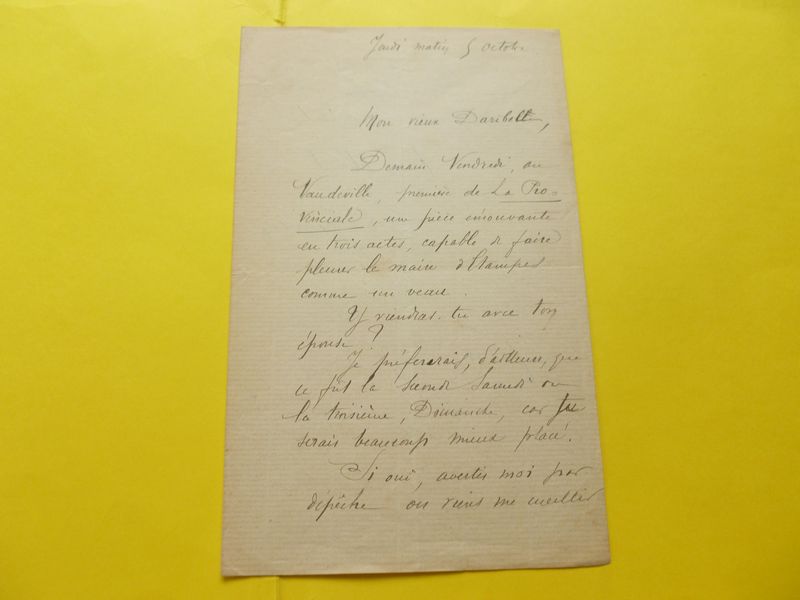 Jeudi matin 5 octobre
Mon vieux
Demain Vendredi, au
Vaudeville, première de La Pro-
vinciale, une pièce émouvante
en trois actes, capable de faire
pleurer le maire d'Etampes
comme un veau.
Y viendras-tu avec ton
épouse ?
Je préférerais, d'ailleurs, que
ce fût la seconde Samedi ou
la troisième, Dimanche, car tu
serais beaucoup mieux placé.
Si oui, avertis moi par
dépêche ou viens me cueillir